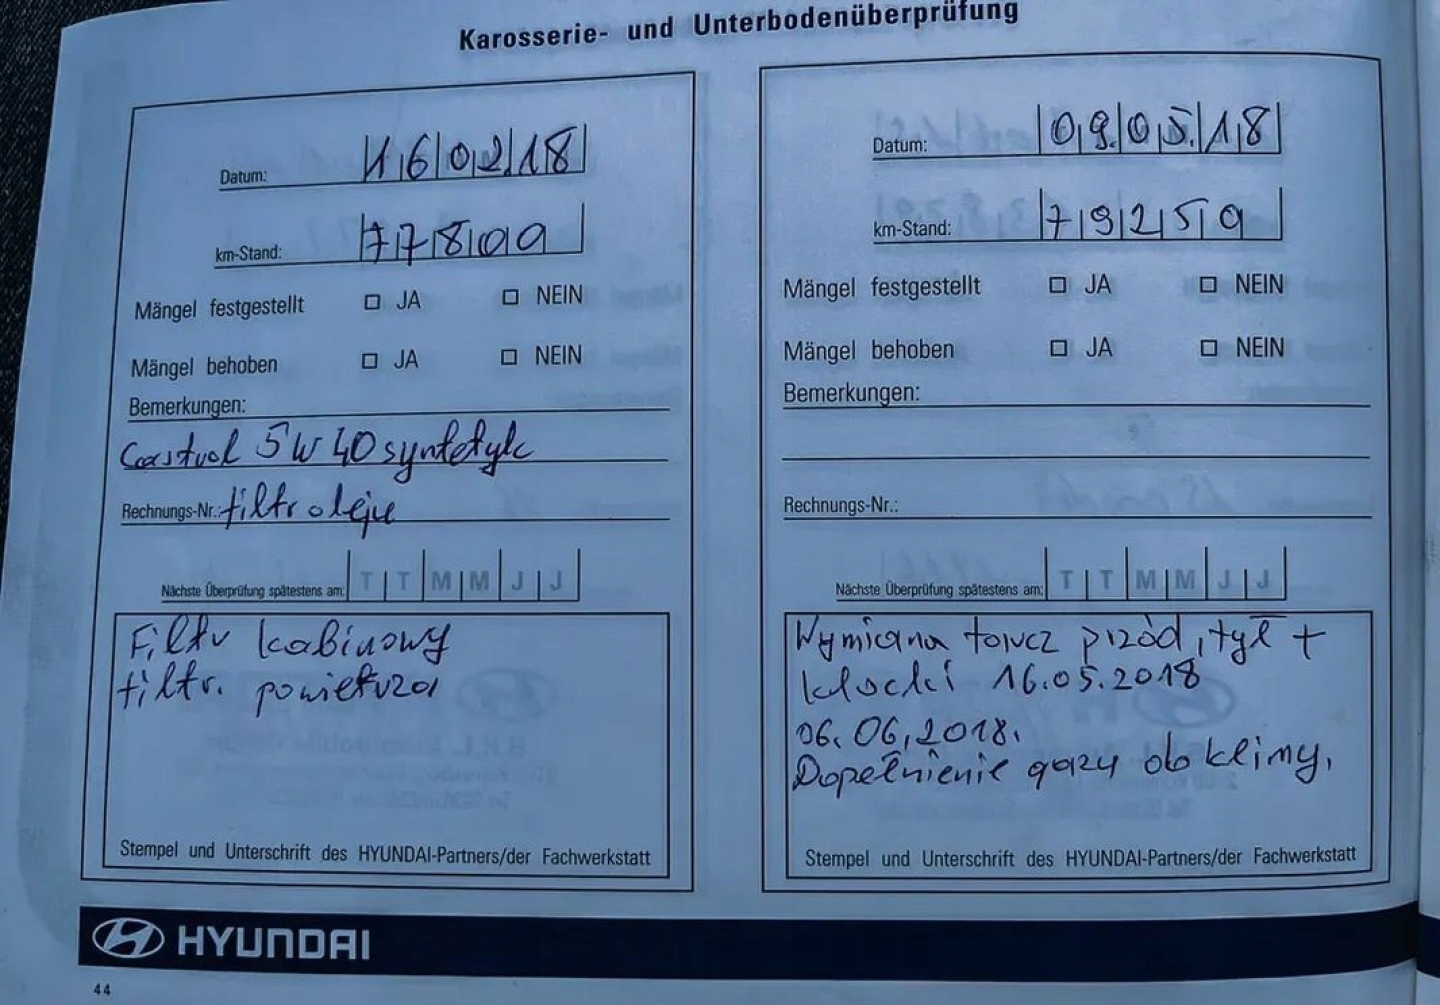 Karosserie- und Unterbodenüberprüfung
Datum: 16 02 18
km-Stand: 77800
Mängel festgestellt JA NEIN
Mängel behoben JA NEIN
Bemerkungen:
Castrol 5W40 syntetyk
Rechnungs-Nr.: filtr oleju
Nächste Überprüfung spätestens am: T T M M J J
Filtr kabinowy
filtr. powietrza
Stempel und Unterschrift des HYUNDAI-Partners/der Fachwerkstatt
Datum: 09.05.18
km-Stand: 79259
Mängel festgestellt JA NEIN
Mängel behoben JA NEIN
Bemerkungen:
Rechnungs-Nr.:
Nächste Überprüfung spätestens am: T T M M J J
Wymiana tarcz przód, tył +
klocki 16.05.2018
06.06.2018.
Dopełnienie gazu do klimy.
Stempel und Unterschrift des HYUNDAI-Partners/der Fachwerkstatt
HYUNDAI
44